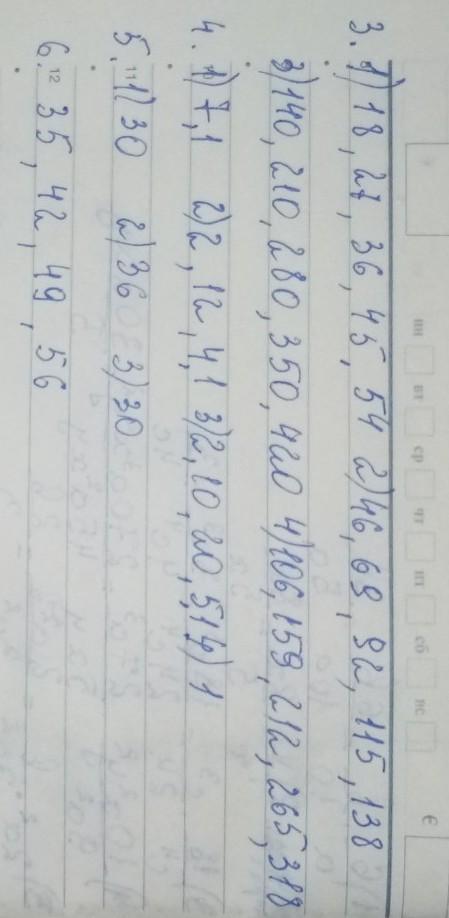 пн вт ср чт пт сб вс
3. 1) 18, 27, 36, 45, 54 2) 46, 69, 92, 115, 138
3) 140, 210, 280, 350, 420 4) 106, 159, 212, 265, 318
4. 1) 7, 1 2) 2, 12, 4, 1 3) 2, 10, 20, 5, 1 4) 1
11
5. 1) 30 2) 36 3) 30
12
6. 35, 42, 49, 56